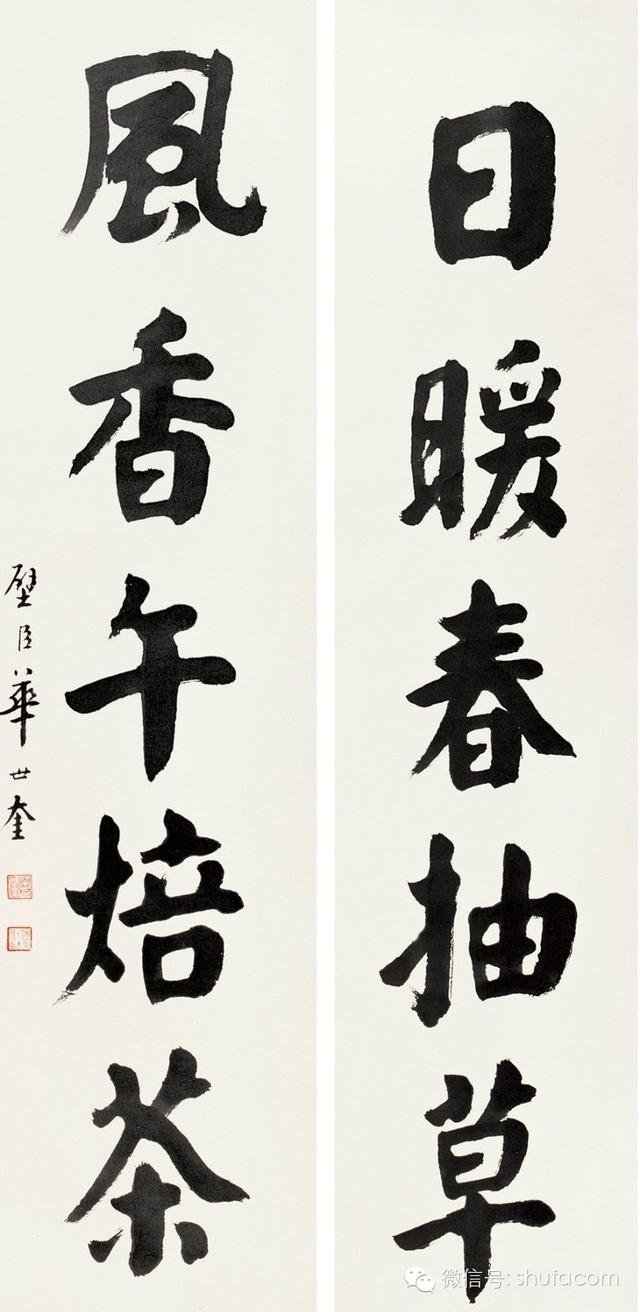 日暖春抽草
風香午焙茶
璧臣華世奎
微信号: shufacom